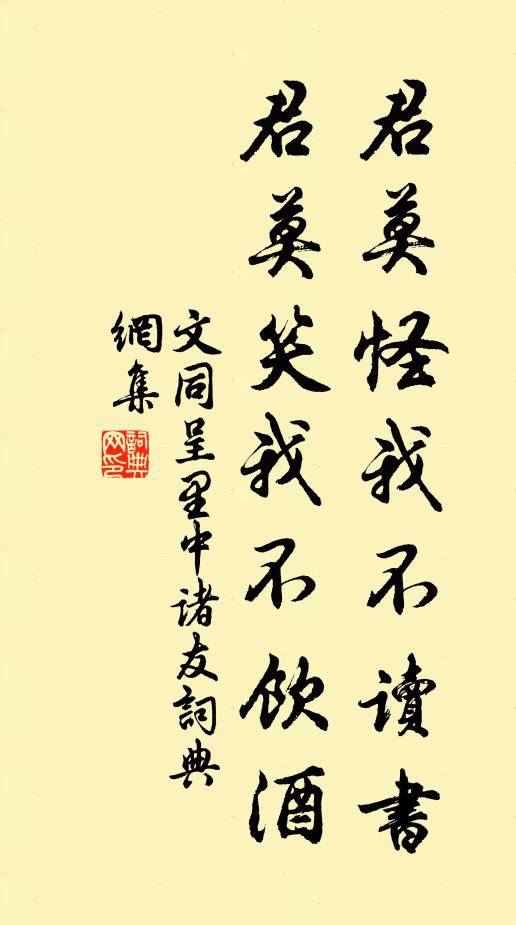 君莫怪我不讀書
君莫笑我不飲酒
文同呈里中諸友詞典
網集
詞典
网印